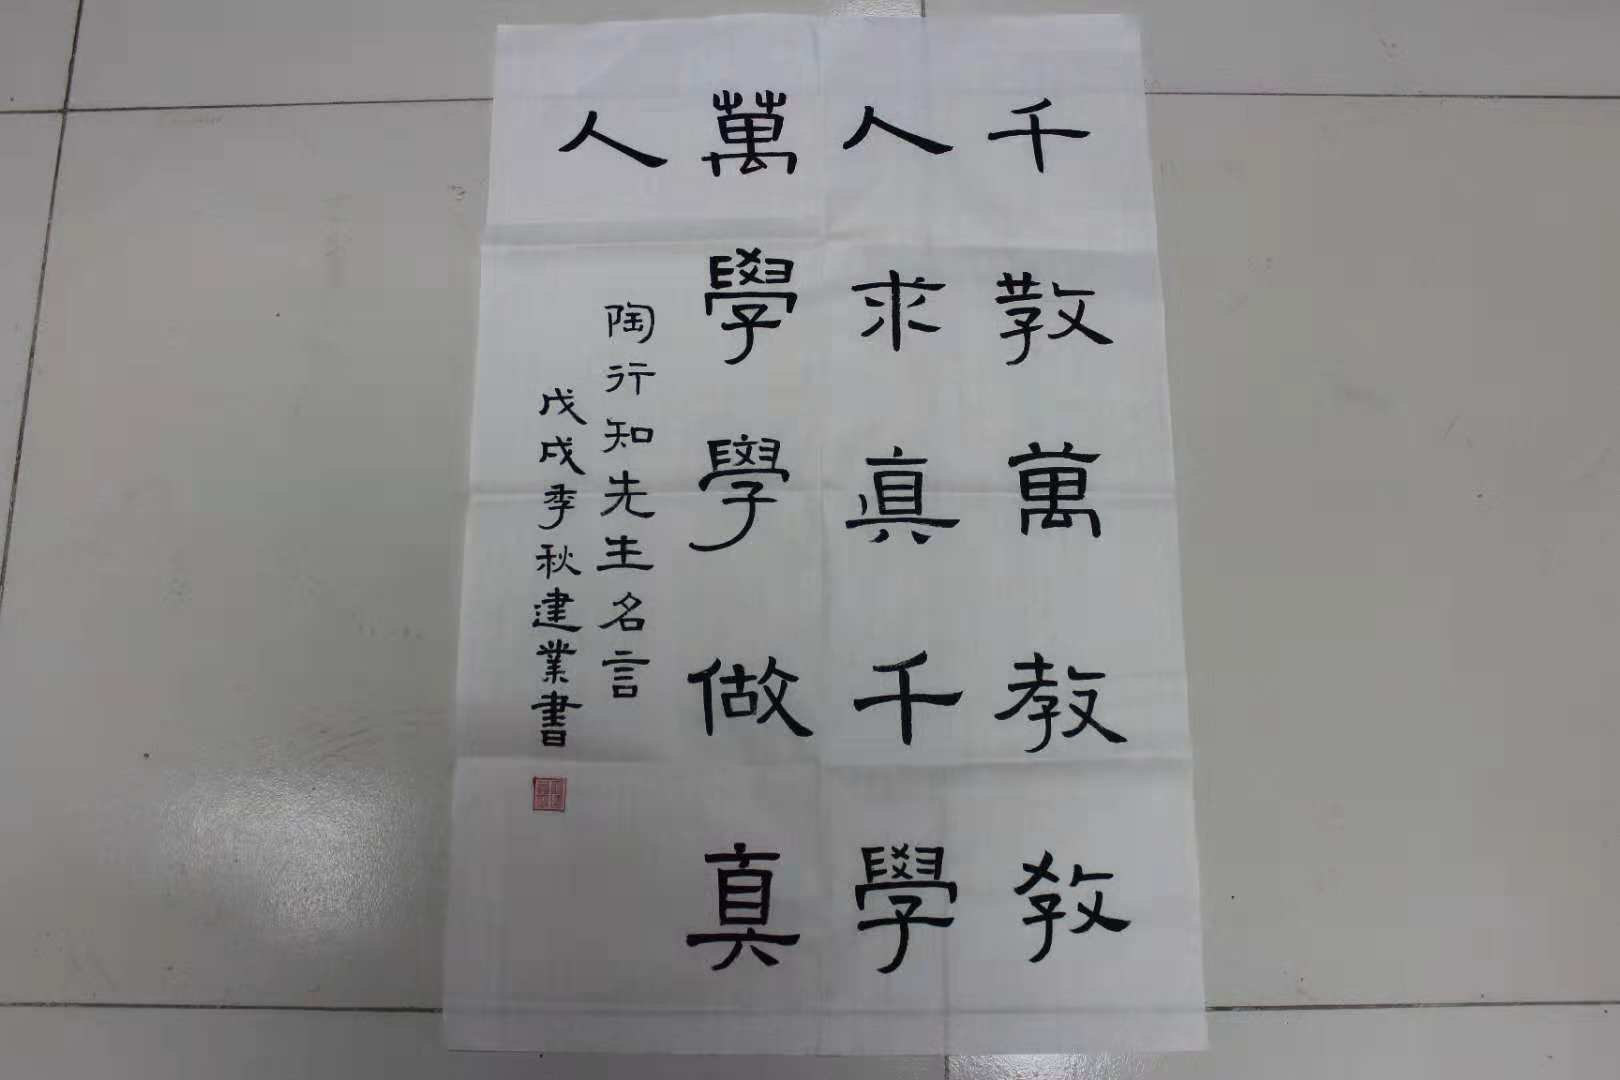 千教萬教教
人求真千學
萬學學做真
人
陶行知先生名言
戊戌季秋建業書